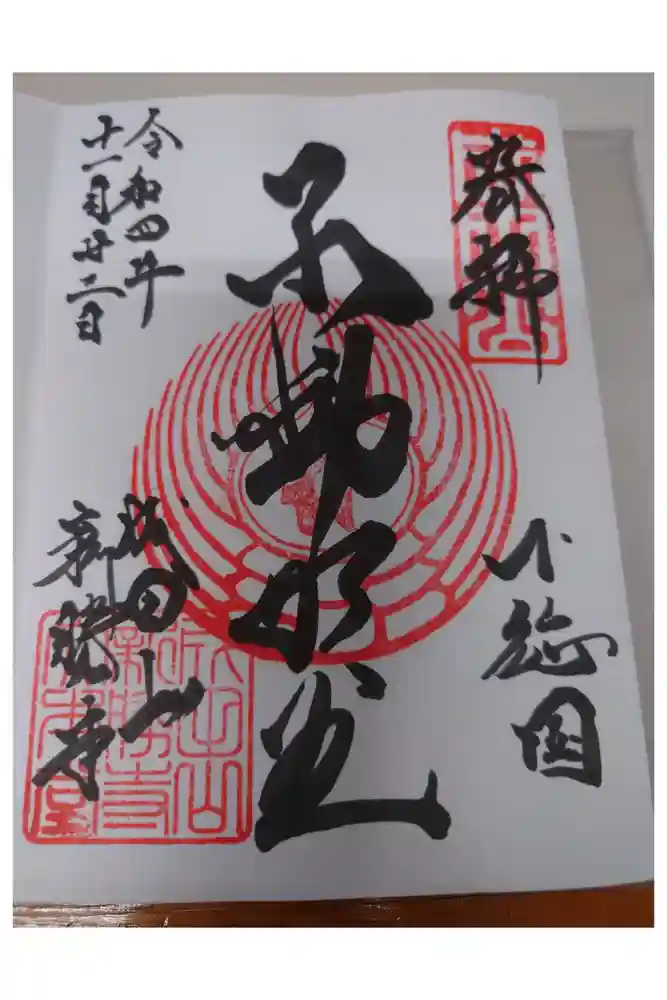 奉拝
下総国
不動明王
成田山
新勝寺
令和四年
十一月廿二日
成田山
新勝寺
大本堂